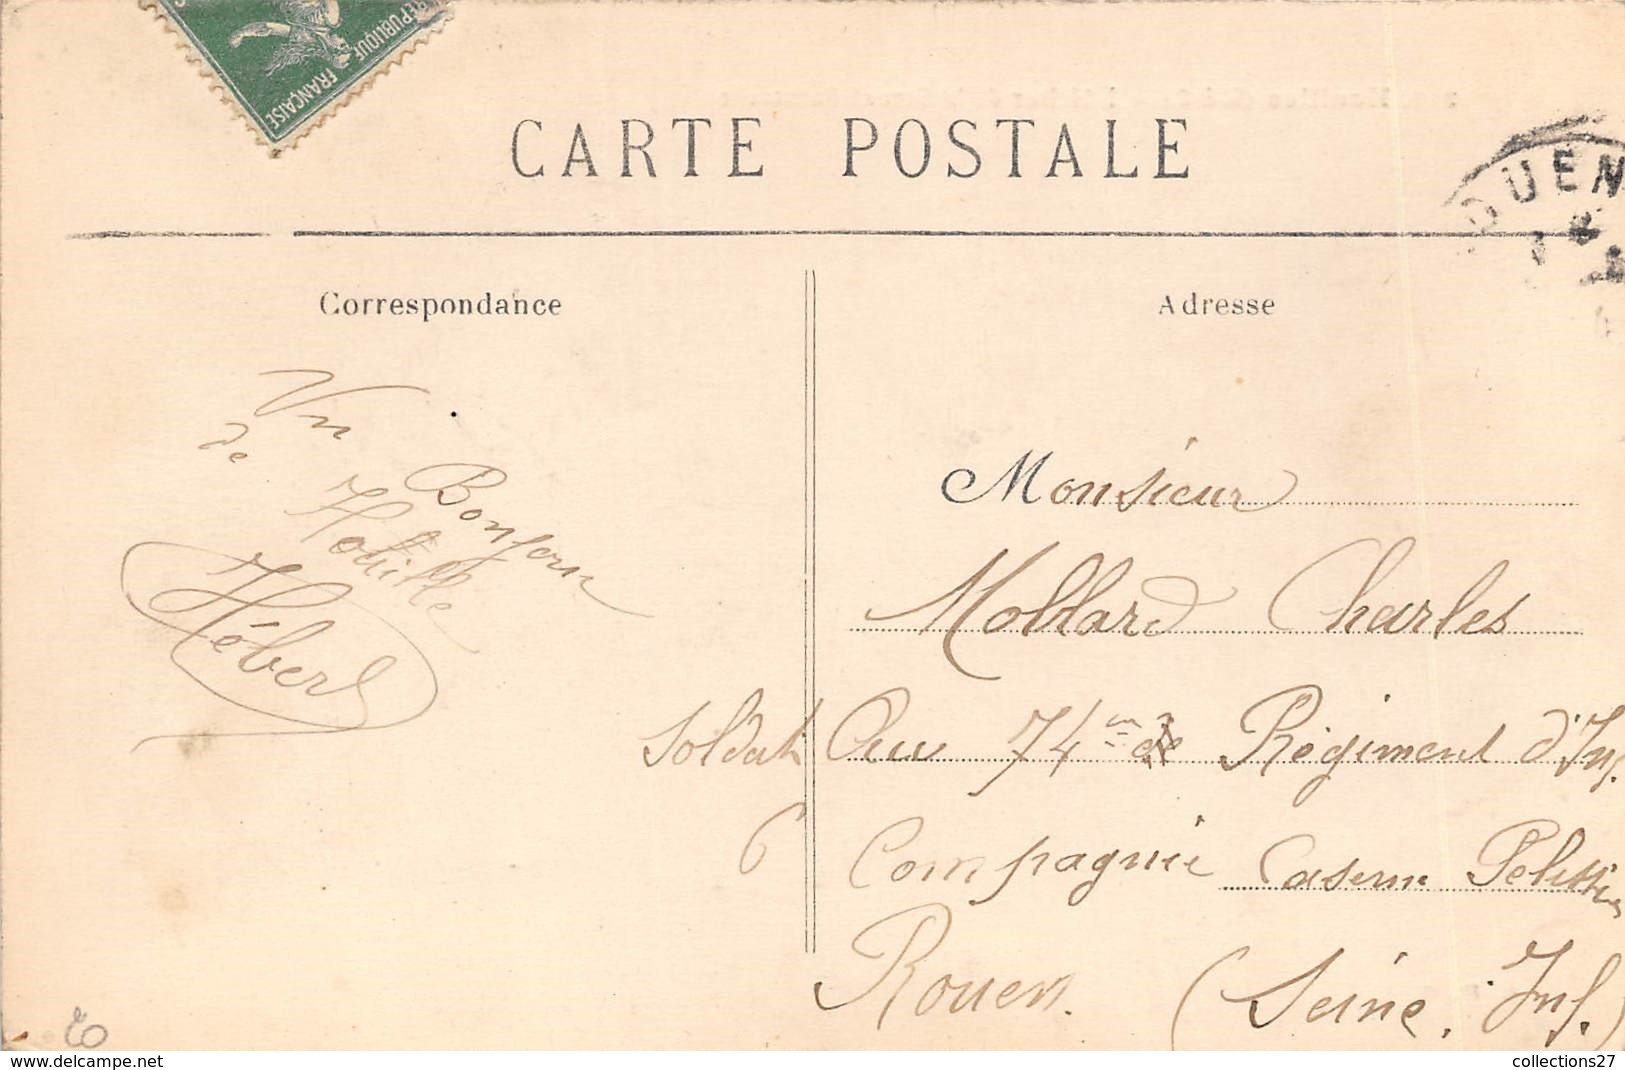 RÉPUBLIQUE FRANÇAISE
CARTE POSTALE
OUEN
Correspondance
Adresse
Un Bonjour
de Houille
Hébert
Monsieur
Mollard Charles
Soldat Au 74me de Régiment d'Inf.
6 Compagnie Caserne Pelissier
Rouen. (Seine. Inf.
20
collections27